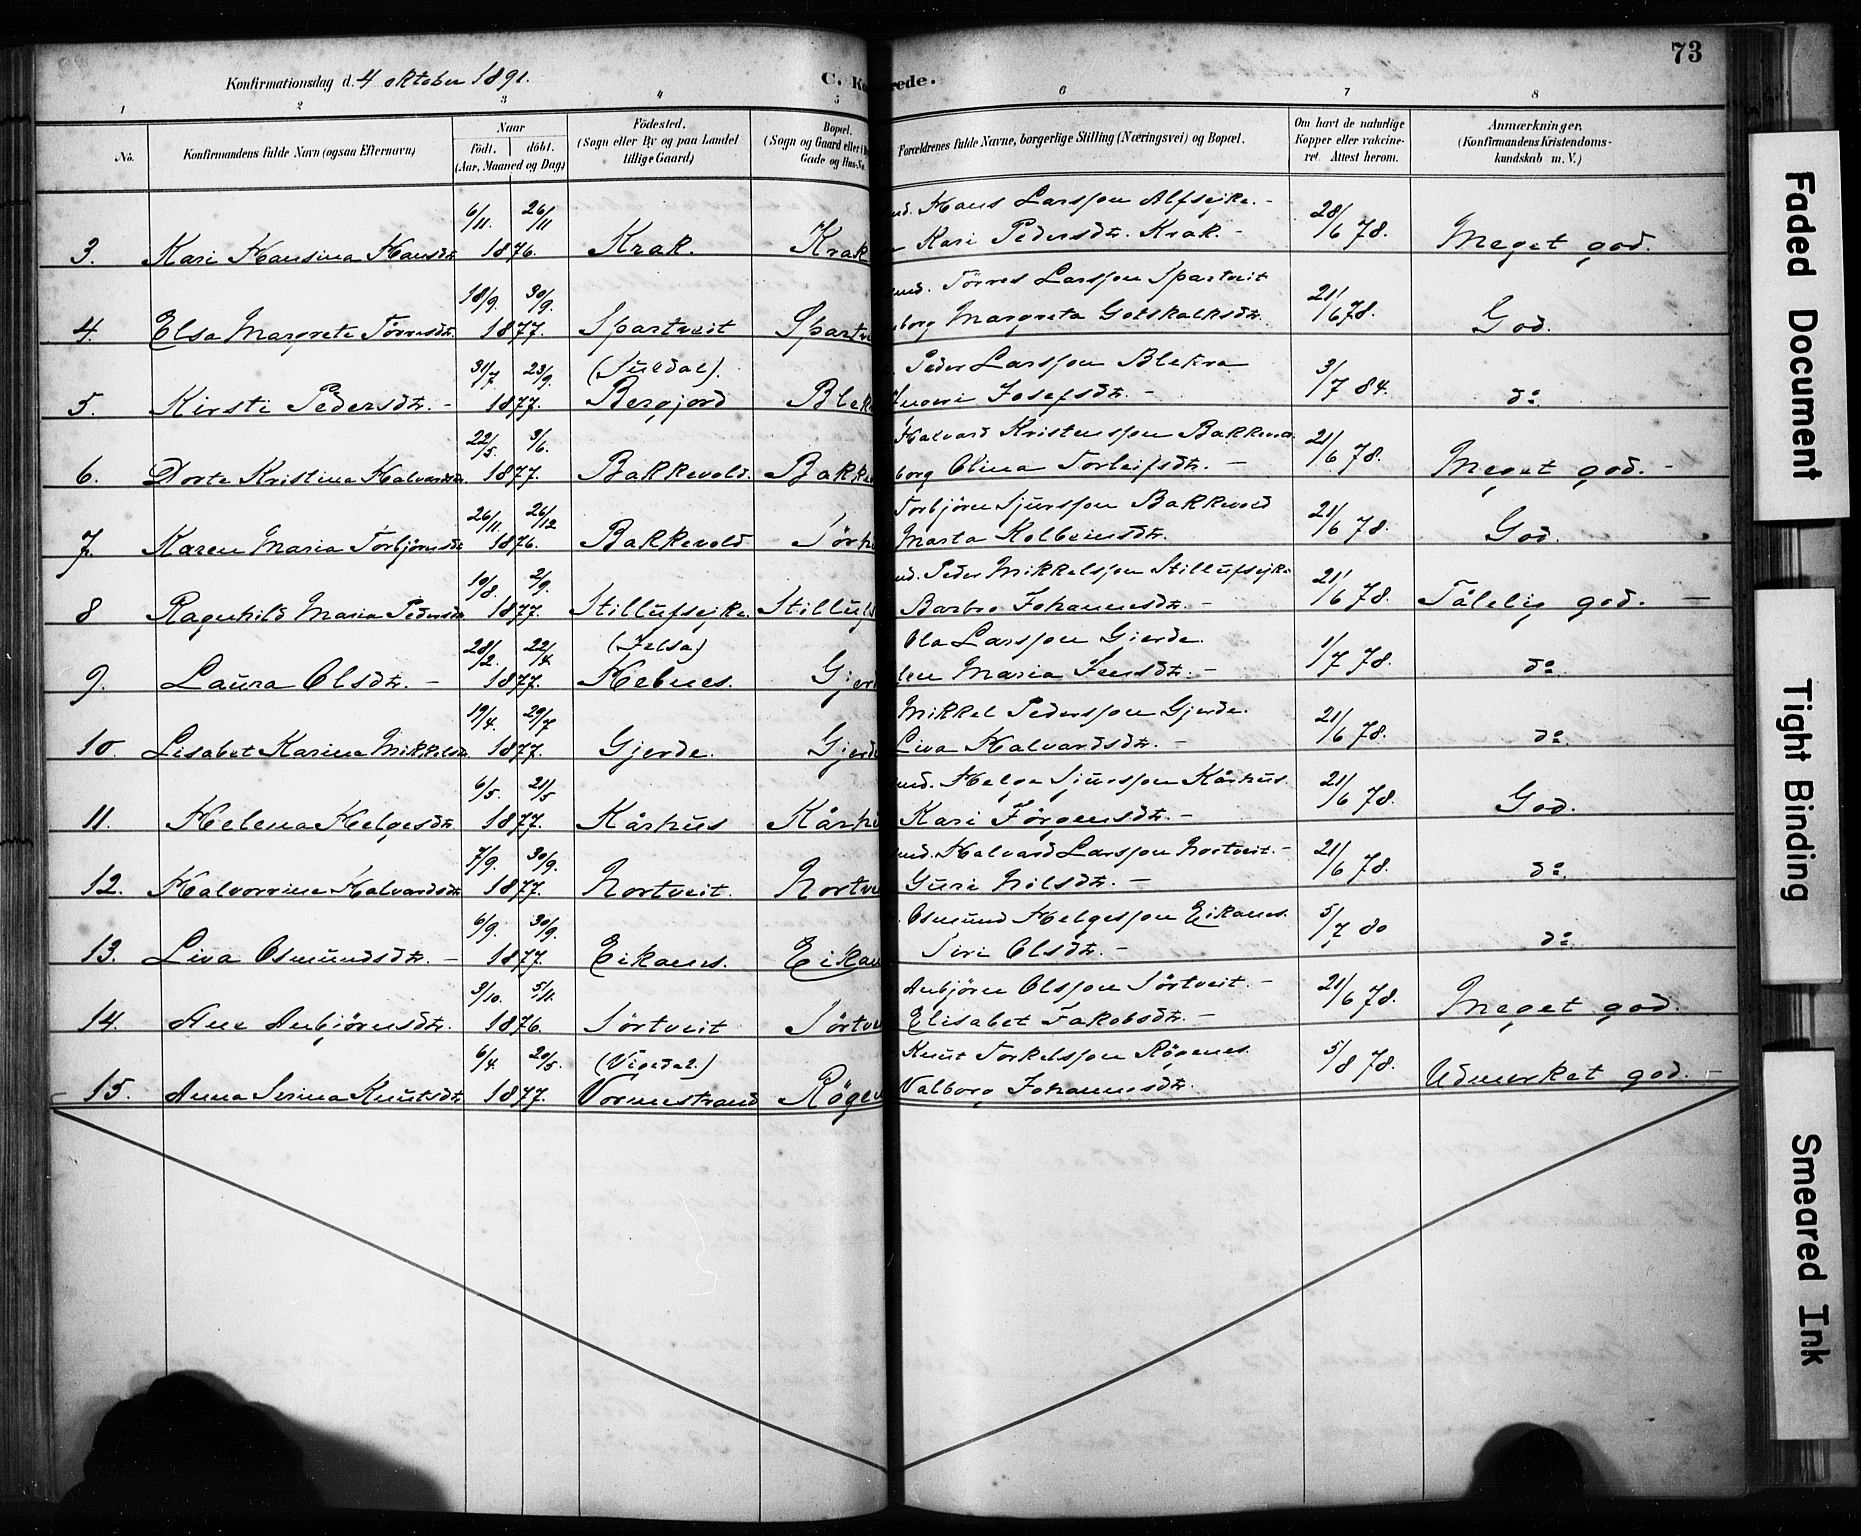 73
Konfirmationsdag d. 4 oktober 1891.
C. Ko rede.
1 2 3 4 5 6 7 8
No.
Konfirmandens fulde Navn (ogsaa Efternavn)
Naar
födt. döbt.
(Aar, Maaned og Dag)
Födested.
(Sogn eller By og paa Landet
tillige Gaard)
Bopæl.
(Sogn og Gaard eller
Gade og Hus-No.
Forældrenes fulde Navne, borgerlige Stilling (Næringsvei) og Bopæl.
Om havt de naturlige
Kopper eller vakcine-
ret. Attest herom.
Anmærkninger.
(Konfirmandens Kristendoms-
kundskab m. V.)
6/11. 26/11 Hans Larsson Alfsejke. - 28/6 78.
3. Kari Hansina Hansdtr 1876. Krak. Krak Kari Pedersdtr. Krak. - Meget god.
18/9. 30/9. Törres Larsson Spartveit 21/6 78.
4. Elsa Margrete Törresdtr. 1877. Spartveit Spartve borg Margreta Gotskalksdtr. God.
31/7 23/9. (Suldal). Peder Larsson Blekra 3/7 84.
5. Kirsti Pedersdtr. - 1877. Bergjord Blek Josefsdtr. - do
22/5 3/6. Halvard Kristensson Bakkevo 21/6 78.
6. Dorte Kristina Halvardsdtr 1877. Bakkevold. Bakke borg Olina Torleifsdtr. - Meget god. -
26/11. 26/12 Torbjörn Sjursson Bakkevold 21/6 78.
7. Karen Maria Torbjörnsdtr 1876. Bakkevold Sörh Marta Kolbeinsdtr. God.
19/8. 2/9. Peder Mikkelsson Stillufsejke 21/6 78.
8 Ragnhild Maria Pedersdtr 1877. Stillufsejke. Stillufs Barbro Johannesdtr. - Tålelig god. -
28/2. 22/4 (Jelsa) Ola Larsson Gjerde. 1/7 78.
9. Laura Olsdtr. - 1877. Hebnes. Gjer len Maria Jensdtr. - do
19/4. 29/7 Mikkel Pedersson Gjerde. 21/6 78.
10. Lisabet Karina Mikkelsdtr 1877. Gjerde. Gjerd Liva Halvardsdtr. - do
6/5. 21/5 Helge Sjursson Kårhus. 21/6 78.
11. Helena Helgesdtr. 1877. Kårhus Kårhu Kari Jörgensdtr. - God.
7/9. 30/9. Halvard Larsson Nortveit. - 21/6 78.
12. Halvorrine Halvardsdtr 1877. Nortveit. Nortve Guri Nilsdtr. - do
6/9. 30/9. Osmund Helgesson Eikanes. 5/7 80
13. Liva Osmundsdtr. - 1877. Eikanes. Eikan Siri Olsdtr. - do
3/10. 5/11. Anbjörn Olsson Sörtveit. - 21/6 78.
14. Ane Anbjörnsdtr. 1876. Sörtveit Sörtve Elisabet Jakobsdtr. - Meget god.
6/4 20/5. (Vigedal.) Knut Torkelsson Rögenes. 5/8 78.
15. Anna Serina Knutsdtr. 1877. Vormestrand Rögen Valborg Johannesdtr. Udmerket god. -
Faded Document
Tight Binding
Smeared Ink